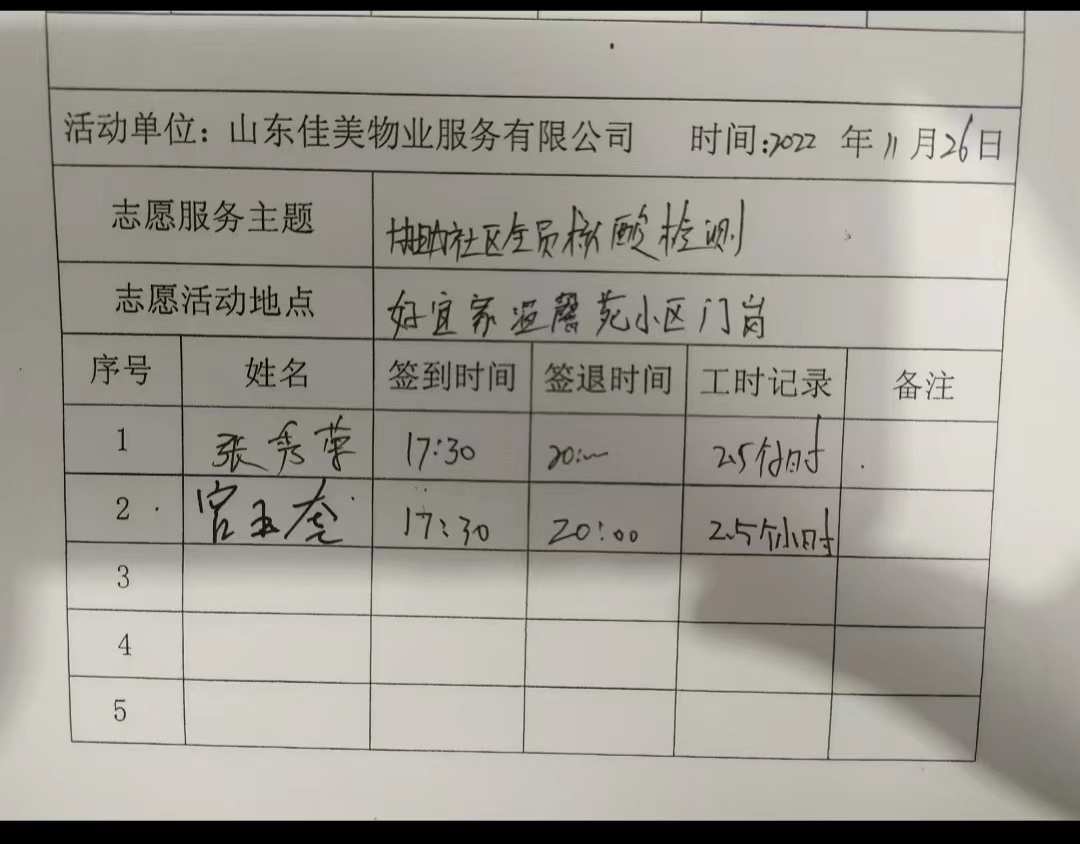 活动单位：山东佳美物业服务有限公司 时间:2022 年 11 月 26 日
志愿服务主题 协助社区全员核酸检测
志愿活动地点 好宜家温馨苑小区门岗
序号 姓名 签到时间 签退时间 工时记录 备注
1 张秀荣 17:30 20:00 2.5个小时
2 宫玉虎 17:30 20:00 2.5个小时
3
4
5